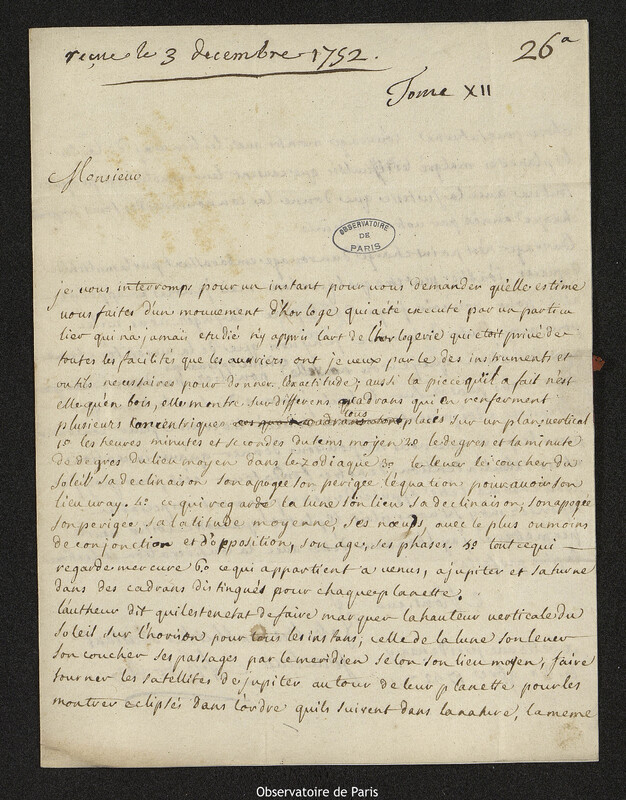 reçue le 3 decembre 1752.
26a
Tome XII
Monsieur
OBSERVATOIRE
DE
PARIS
je vous interromps pour un instant pour vous demander quelle estime
vous faites d'un mouvement d'horloge qui a été executé par un particu
lier qui n'a jamais etudié n'y appris l'art de l'horlogerie qui etoit privé de
toutes les facilités que les ouvriers ont je veux parler des instruments et
outils necessaires pour donner l'exactitude; aussi la piece qu'il a fait n'est
elle qu'en bois, elle montre sur differens quadrans qui en renferment
plusieurs concentriques tous placés sur un plan vertical
1o les heures minutes et secondes du tems moyen 2o le degres et la minute
de degres du lieu moyen dans le zodiaque 3o le lever le coucher du
soleil sa declinaison son apogée son perigée l'équation pour avoir son
lieu vray. 4o ce qui regarde la lune son lieu sa declinaison, son apogée
son perigée, sa latitude moyenne, ses nœuds, avec le plus ou moins
de conjonction et d'opposition, son age, ses phases. 5o tout ce qui
regarde mercure 6o ce qui appartient a venus, a jupiter et saturne
dans des cadrans distingués pour chaque planette.
l'autheur dit qu'il est en etat de faire marquer la hauteur verticale du
soleil sur l'horison pour tous les instans, celle de la lune son lever
son coucher ses passages par le meridien selon son lieu moyen, faire
tourner les satellites de jupiter autour de leur planette pour les
montrer eclipsés dans l'ordre qu'ils suivent dans la nature, la meme
Observatoire de Paris